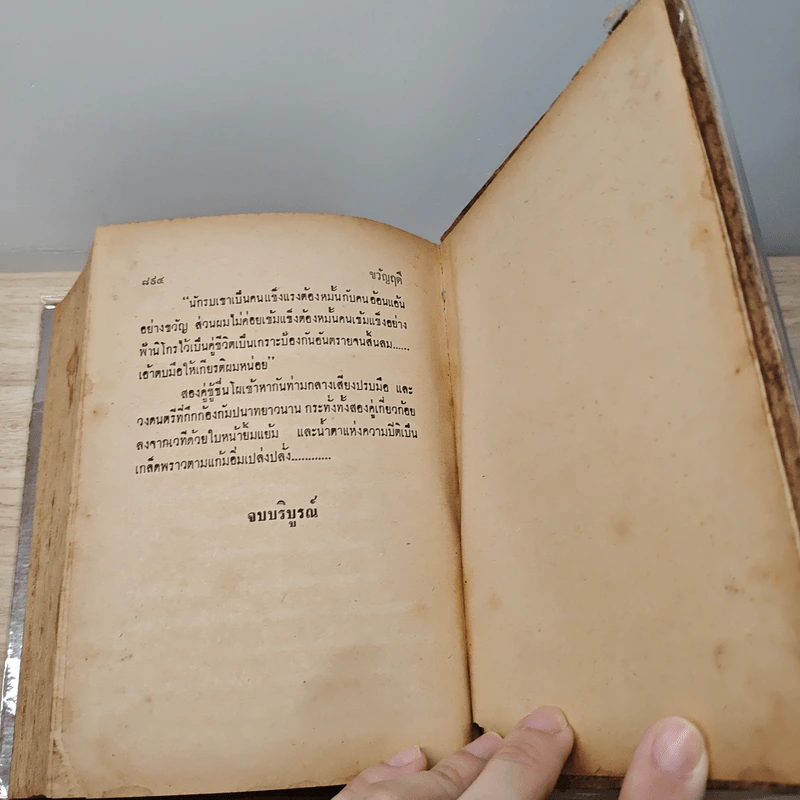 ๘๕๔ ขวัญฤดี
"นักรบเขาเป็นคนแข็งแรงต้องหมั้นกับคนอ้อนแอ้น
อย่างขวัญ ส่วนผมไม่ค่อยเข้มแข็งต้องหมั้นคนเข้มแข็งอย่าง
พ้านิโกรไว้เป็นคู่ชีวิตเป็นเกราะป้องกันอันตรายจนสิ้นลม.....
เอ้าตบมือให้เกียรติผมหน่อย"
สองคู่ชู้ชื่นโผเข้าหากันท่ามกลางเสียงปรบมือ และ
วงดนตรีที่กึกก้องกัมปนาทยาวนาน กระทั่งทั้งสองคู่เกี่ยวก้อย
ลงจากเวทีด้วยใบหน้ายิ้มแย้ม และน้ำตาแห่งความปิติเป็น
เกล็ดพราวตามแก้มอิ่มเปล่งปลั่ง............
จบบริบูรณ์